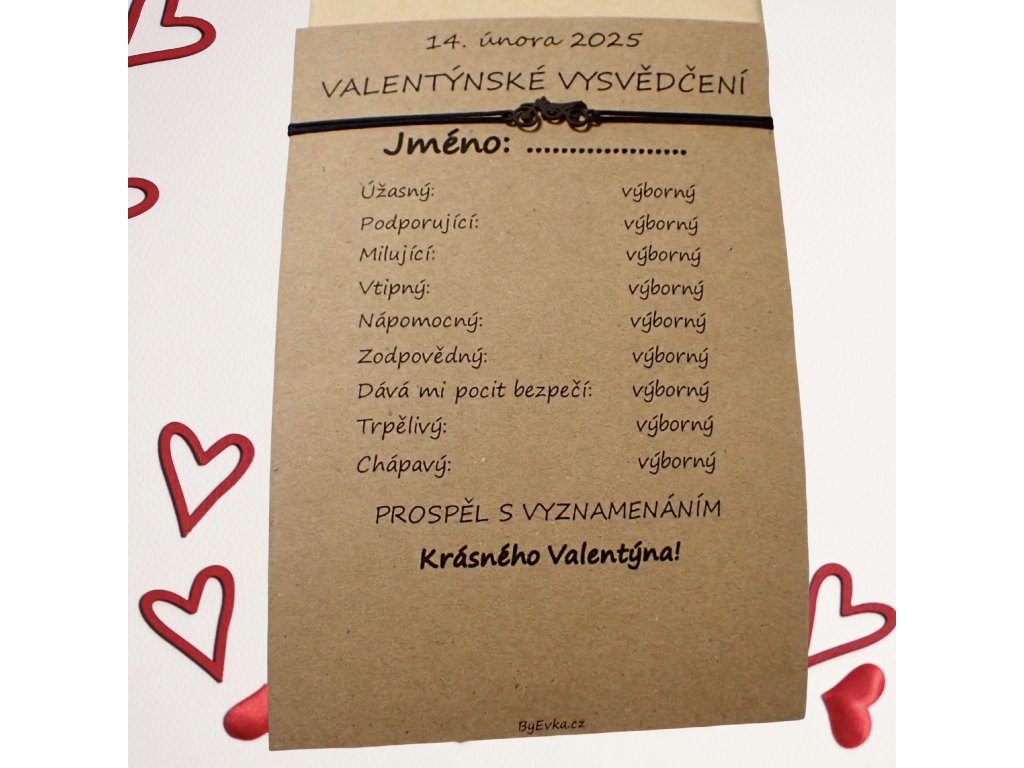 14. února 2025
VALENTÝNSKÉ VYSVĚDČENÍ
Jméno: ...................
Úžasný: výborný
Podporující: výborný
Milující: výborný
Vtipný: výborný
Nápomocný: výborný
Zodpovědný: výborný
Dává mi pocit bezpečí: výborný
Trpělivý: výborný
Chápavý: výborný
PROSPĚL S VYZNAMENÁNÍM
Krásného Valentýna!
ByEvka.cz